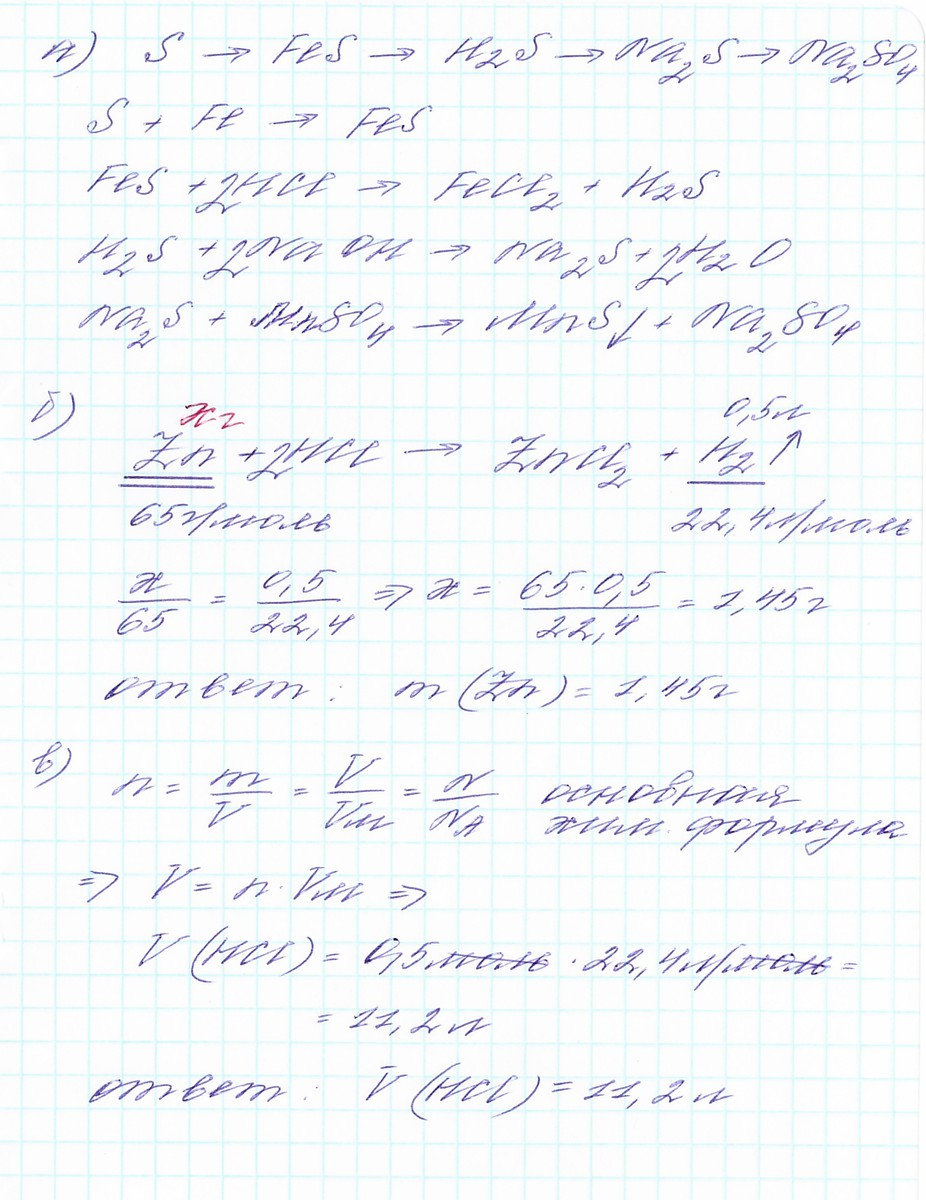 а) S → FeS → H₂S → Na₂S → Na₂SO₄
S + Fe → FeS
FeS + 2HCl → FeCl₂ + H₂S
H₂S + 2NaOH → Na₂S + 2H₂O
Na₂S + MnSO₄ → MnS↓ + Na₂SO₄
б) xг 0,5л
Zn + 2HCl → ZnCl₂ + H₂↑
65г/моль 22,4л/моль
x/65 = 0,5/22,4 => x = 65·0,5/22,4 = 1,45г
ответ: m(Zn) = 1,45г
в) n = m/V = V/Vм = N/Nᴀ основная
хим. формула
=> V = n·Vм =>
V(HCl) = 0,5моль · 22,4л/моль =
= 11,2л
ответ: V(HCl) = 11,2л